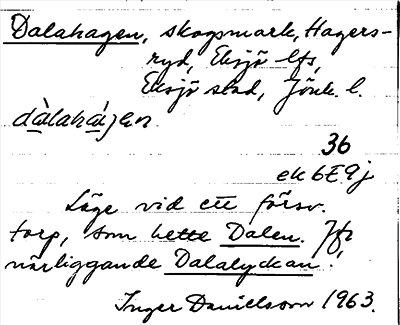 Dalahagen, skogsmark, Hagers-
ryd, Eksjö lfs,
Eksjö stad, Jönk. l.
dàlahá̱gen
36
ek 6E9j
Läge vid ett försv.
torp, som hette Dalen. Jfr
närliggande Dalalyckan.
Inger Danielsson 1963.